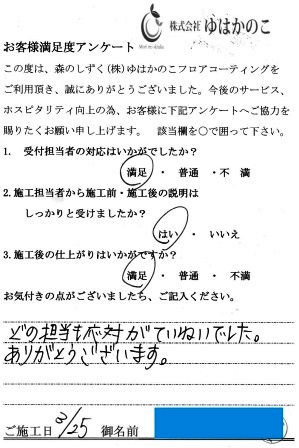 株式会社 ゆはかのこ
お客様満足度アンケート
この度は、森のしずく(株)ゆはかのこフロアコーティングを
ご利用頂き、誠にありがとうございました。今後のサービス、
ホスピタリティ向上の為、お客様に下記アンケートへご協力を
賜りたくお願い申し上げます。 該当欄を○で囲って下さい。
1. 受付担当者の対応はいかがでしたか?
満足 ・ 普通 ・不 満
2.施工担当者から施工前・施工後の説明は
しっかりと受けましたか?
はい ・ いいえ
3.施工後の仕上がりはいかがですか?
満足 ・ 普通 ・ 不満
お気付きの点がございましたら、ご記入ください。
どの担当も応対がていねいでした。
ありがとうございます。
ご施工日 2/25 御名前